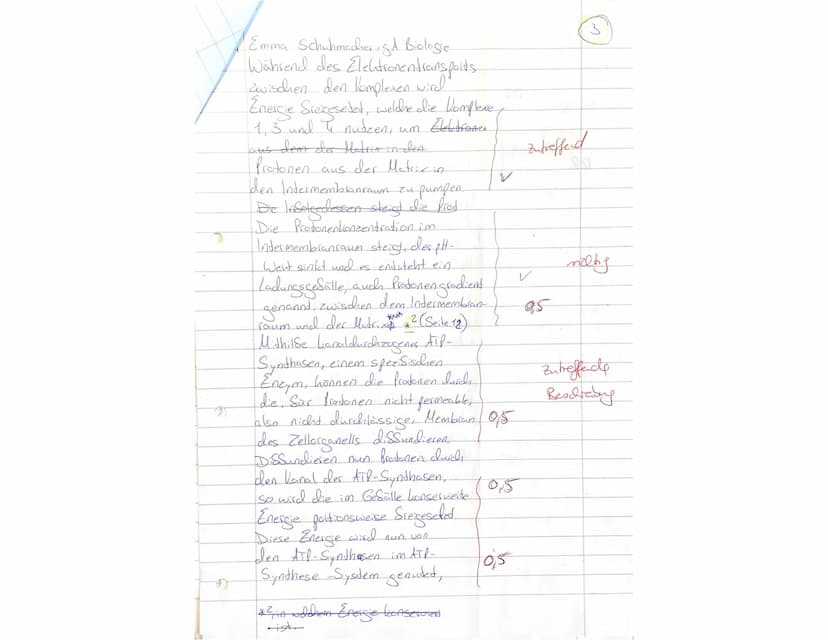 3
Emma Schuhmacher, gA Biologie
Während des Elektronentransports
zwischen den Komplexen wird
Energie freigesetzt, welche die Komplexe
1, 3 und 4 nutzen, um Elektronen
aus dem der Matrix in den
zutreffend
Protonen aus der Matrix in
den Intermembranraum zu pumpen.
✓
De Infolgedessen steigt die Prot
Die Protonenkonzentration im
Intermembranraum steigt, der pH-
Wert sinkt und es entsteht ein
richtig
Ladungsgefälle, auch Protonengradient
✓
genannt, zwischen dem Intermembran-
0,5
raum und der Matrix *² (Seite 12)
Mithilfe kanaldurchzogener ATP-
Synthasen, einem spezifischen
zutreffende
Enzym, können die Protonen durch
Beschreibung
die, für Protonen nicht permeable,
also nicht durchlässige, Membran
0,5
des Zellorganells diffundieren.
Diffundieren nun Protonen durch
den Kanal der ATP-Synthasen,
0,5
so wird die im Gefälle konservierte
Energie portionsweise freigesetzt.
Diese Energie wird nun von
den ATP-Synthasen im ATP-
0,5
Synthese-System genutzt,
*², in welchem Energie konserviert
ist.